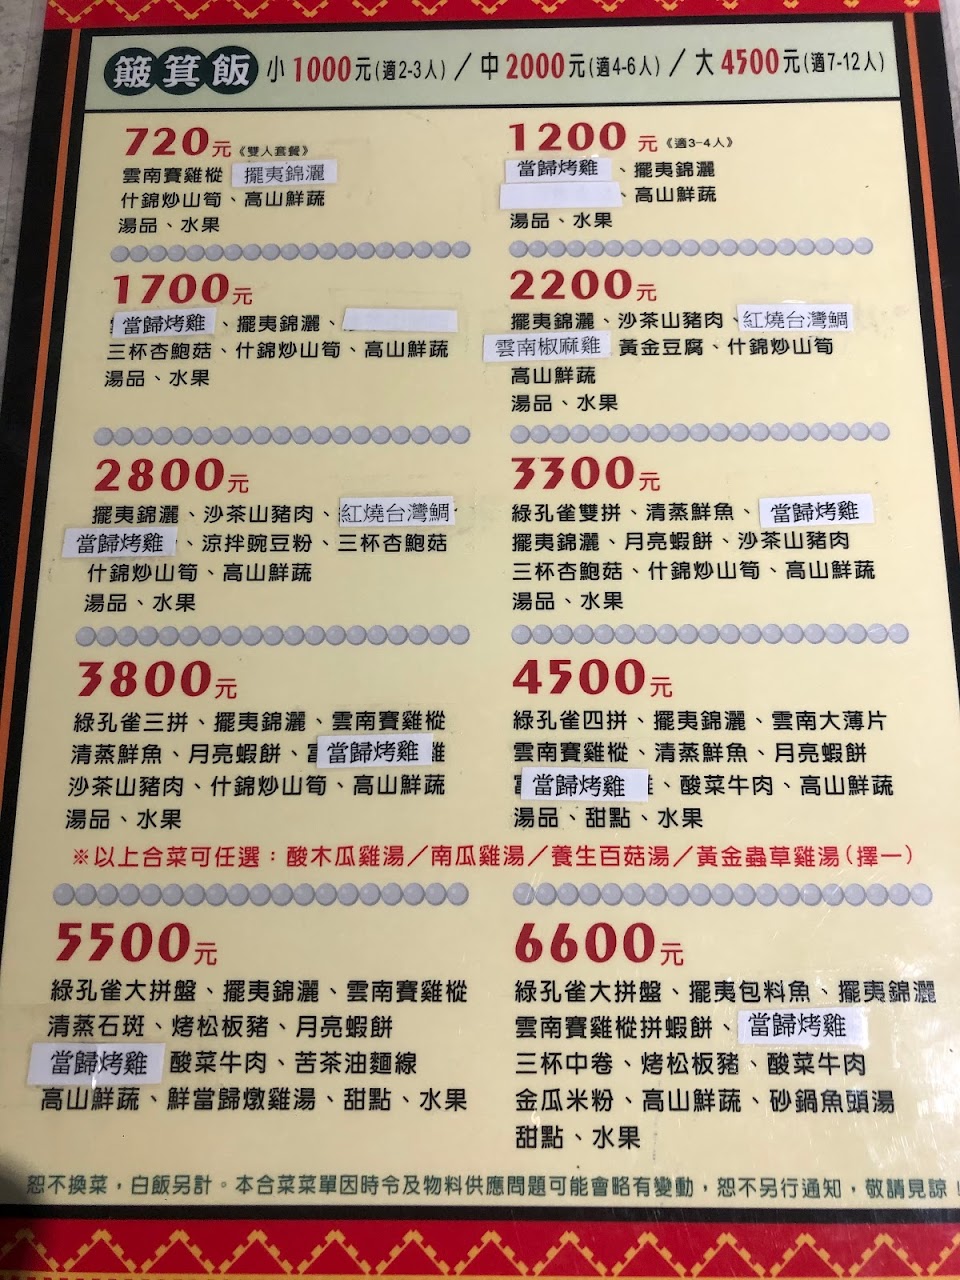 簸箕飯 小1000元(適2-3人)／中2000元(適4-6人)／大4500元(適7-12人)
720元《雙人套餐》
雲南賽雞樅 擺夷錦灑
什錦炒山筍、高山鮮蔬
湯品、水果
1200元《適3-4人》
當歸烤雞、擺夷錦灑
、高山鮮蔬
湯品、水果
1700元
當歸烤雞、擺夷錦灑、
三杯杏鮑菇、什錦炒山筍、高山鮮蔬
湯品、水果
2200元
擺夷錦灑、沙茶山豬肉、紅燒台灣鯛
雲南椒麻雞 黃金豆腐、什錦炒山筍
高山鮮蔬
湯品、水果
2800元
擺夷錦灑、沙茶山豬肉、紅燒台灣鯛
當歸烤雞、涼拌豌豆粉、三杯杏鮑菇
什錦炒山筍、高山鮮蔬
湯品、水果
3300元
綠孔雀雙拼、清蒸鮮魚、當歸烤雞
擺夷錦灑、月亮蝦餅、沙茶山豬肉
三杯杏鮑菇、什錦炒山筍、高山鮮蔬
湯品、水果
3800元
綠孔雀三拼、擺夷錦灑、雲南賽雞樅
清蒸鮮魚、月亮蝦餅、當歸烤雞
沙茶山豬肉、什錦炒山筍、高山鮮蔬
湯品、水果
4500元
綠孔雀四拼、擺夷錦灑、雲南大薄片
雲南賽雞樅、清蒸鮮魚、月亮蝦餅
當歸烤雞、酸菜牛肉、高山鮮蔬
湯品、甜點、水果
※以上合菜可任選：酸木瓜雞湯／南瓜雞湯／養生百菇湯／黃金蟲草雞湯(擇一)
5500元
綠孔雀大拼盤、擺夷錦灑、雲南賽雞樅
清蒸石斑、烤松板豬、月亮蝦餅
當歸烤雞 酸菜牛肉、苦茶油麵線
高山鮮蔬、鮮當歸燉雞湯、甜點、水果
6600元
綠孔雀大拼盤、擺夷包料魚、擺夷錦灑
雲南賽雞樅拼蝦餅、當歸烤雞
三杯中卷、烤松板豬、酸菜牛肉
金瓜米粉、高山鮮蔬、砂鍋魚頭湯
甜點、水果
恕不換菜，白飯另計。本合菜菜單因時令及物料供應問題可能會略有變動，恕不另行通知，敬請見諒！